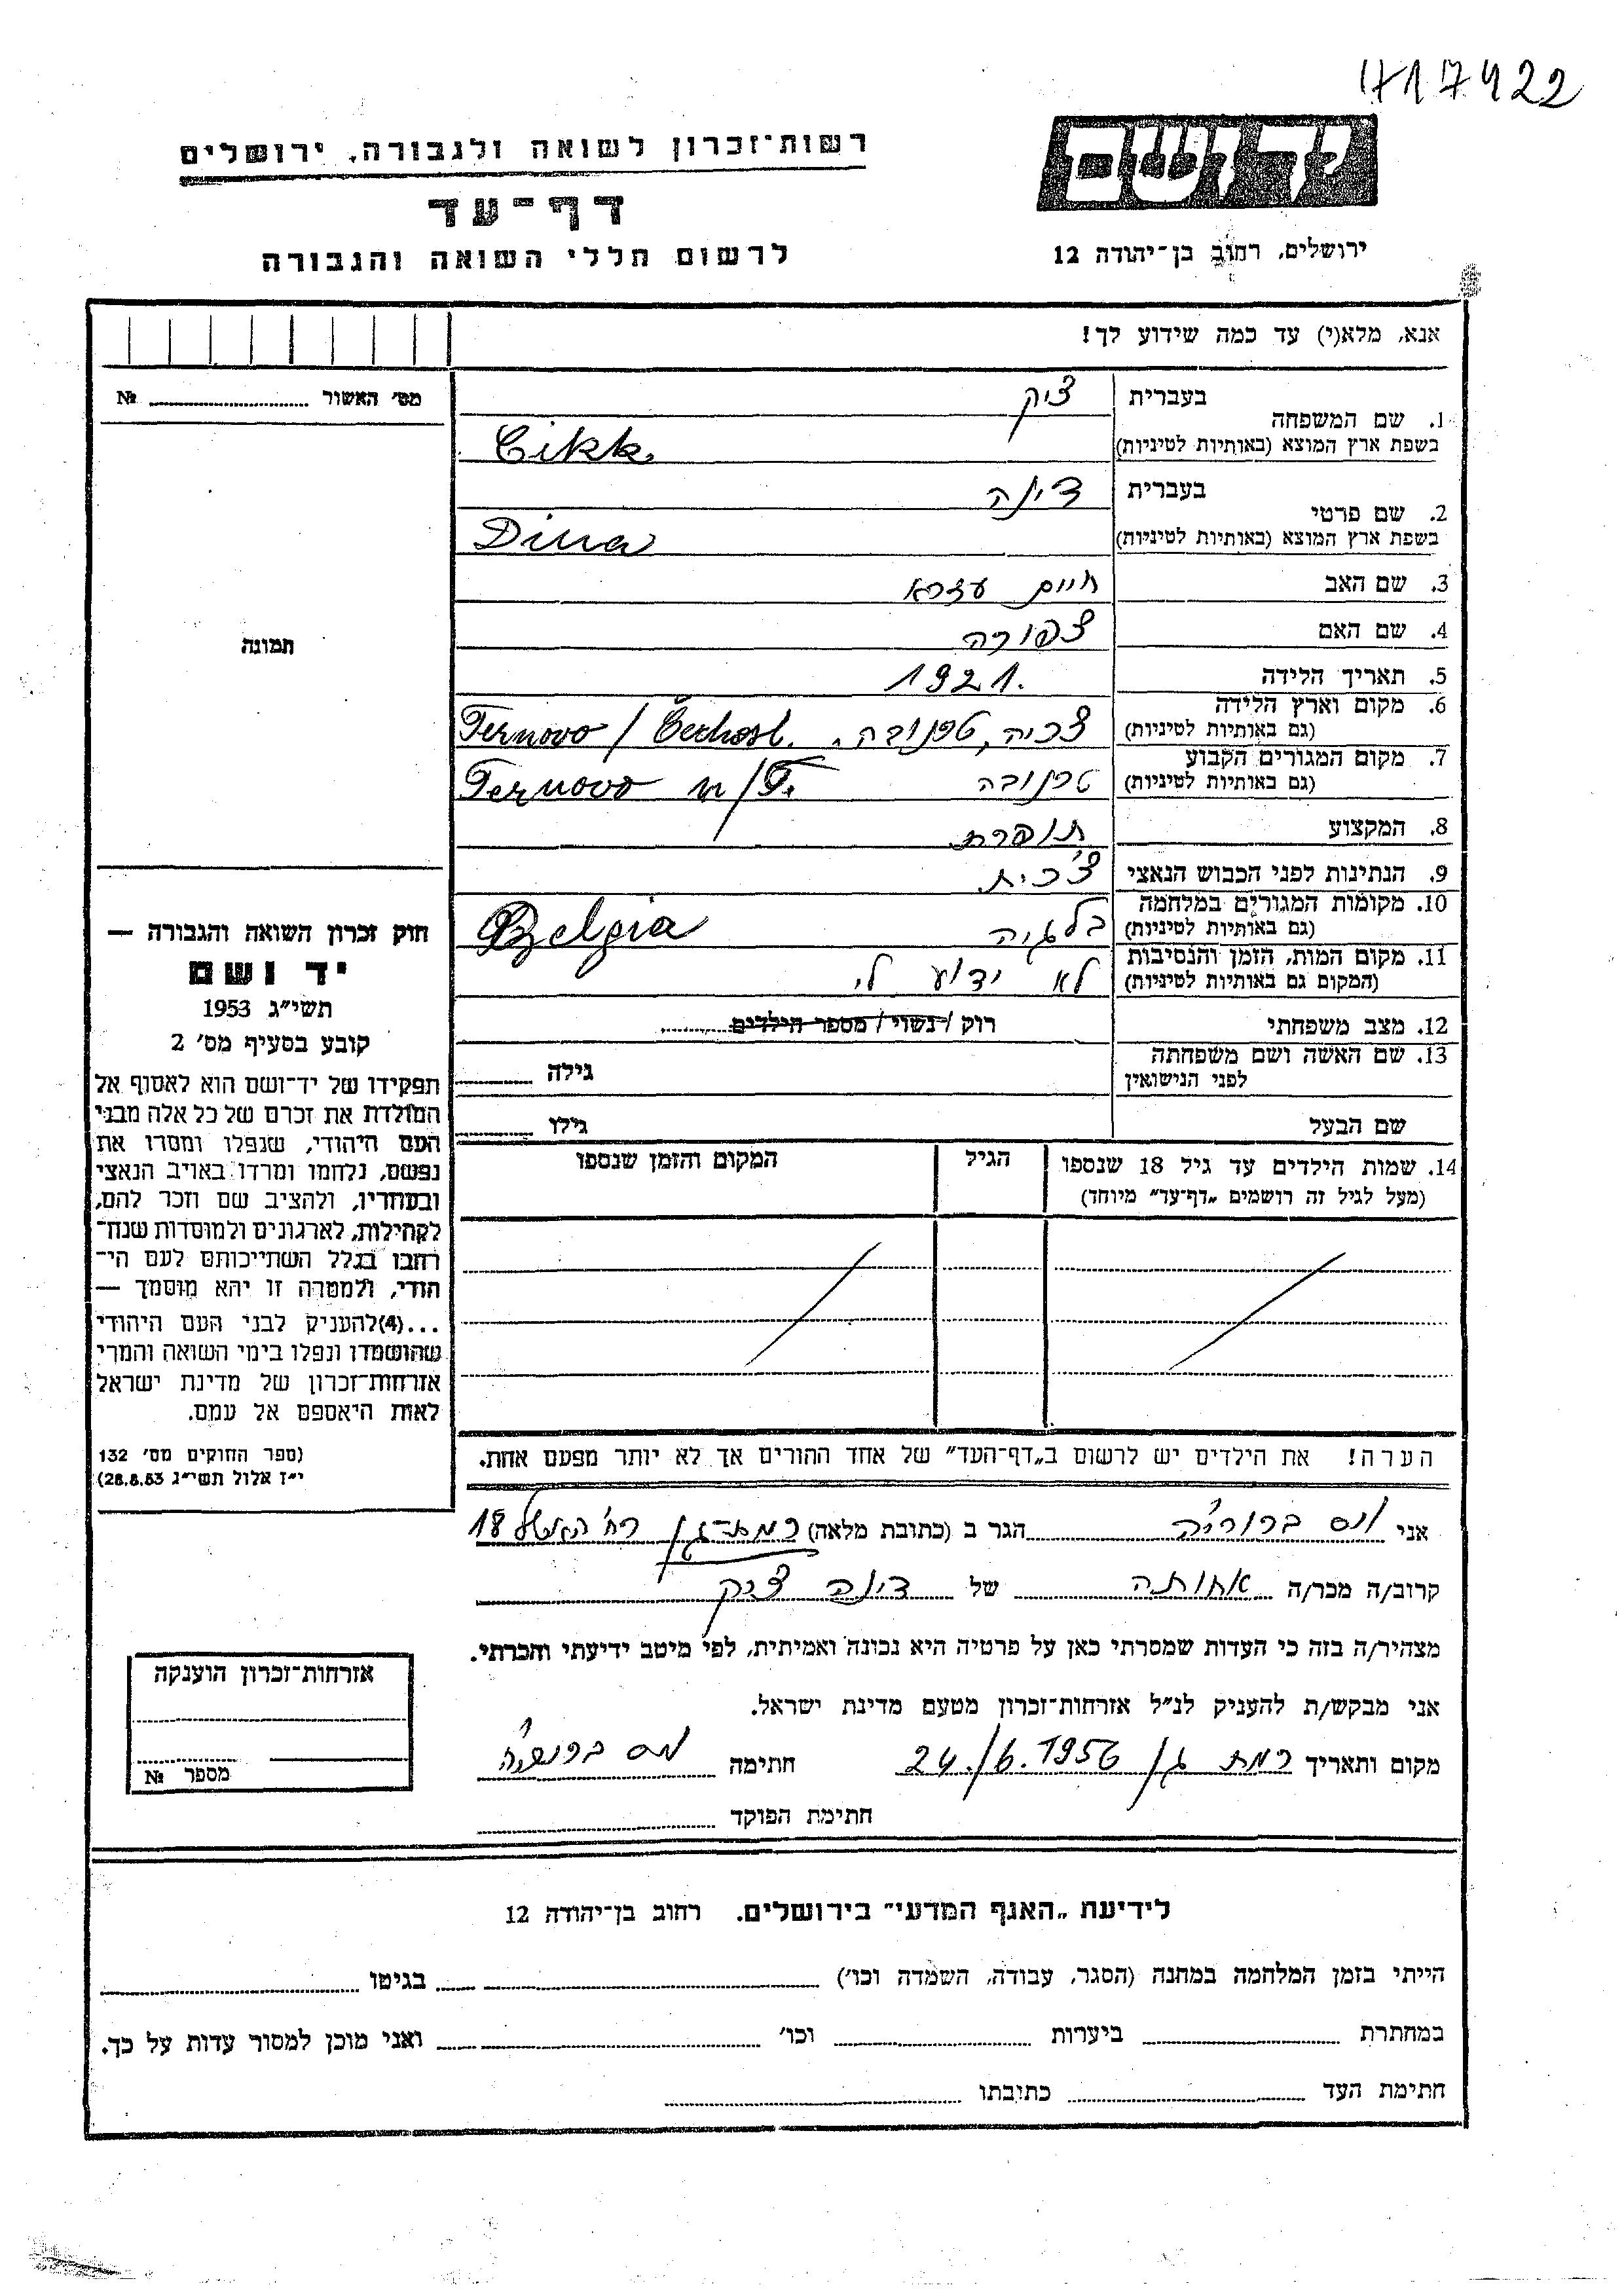 717422
רשות־זכרון לשואה ולגבורה, ירושלים
דף־עד
לרשום חללי השואה והגבורה
ידושם
ירושלים, רחוב בן־יהודה 12
אנא, מלא(י) עד כמה שידוע לך!
מס׳ האשור № 
1. שם המשפחה
בעברית ציק
בשפת ארץ המוצא (באותיות לטיניות) Cikk
2. שם פרטי
בעברית דינה
בשפת ארץ המוצא (באותיות לטיניות) Dina
3. שם האב חיים עזרא
4. שם האם צפורה
5. תאריך הלידה 1921.
6. מקום וארץ הלידה
(גם באותיות לטיניות) צכיה, טרנובה. Ternovo / Čechosl.
7. מקום המגורים הקבוע
(גם באותיות לטיניות) טרנובה Ternovo n/T.
8. המקצוע תופרת
9. הנתינות לפני הכבוש הנאצי צ׳כית
10. מקומות המגורים במלחמה
(גם באותיות לטיניות) בלגיה Belgia
11. מקום המות, הזמן והנסיבות
(המקום גם באותיות לטיניות) לא ידוע לי
12. מצב משפחתי רוק / נשוי / מספר הילדים
13. שם האשה ושם משפחתה
לפני הנישואין גילה
שם הבעל גילו
14. שמות הילדים עד גיל 18 שנספו
(מעל לגיל זה רושמים „דף־עד״ מיוחד)
הגיל
המקום והזמן שנספו
תמונה
חוק זכרון השואה והגבורה —
יד ושם
תשי״ג 1953
קובע בסעיף מס׳ 2
תפקידו של יד־ושם הוא לאסוף אל
המולדת את זכרם של כל אלה מבני
העם היהודי, שנפלו ומסרו את
נפשם, נלחמו ומרדו באויב הנאצי
ובעוזריו, ולהציב שם וזכר להם,
לקהילות, לארגונים ולמוסדות שנח־
רבו בגלל השתייכותם לעם הי־
הודי, ולמטרה זו יהא מוסמך —
...(4) להעניק לבני העם היהודי
שהושמדו ונפלו בימי השואה והמרי
אזרחות־זכרון של מדינת ישראל
לאות היאספם אל עמם.
(ספר החוקים מס׳ 132
י״ז אלול תשי״ג 28.8.53)
הערה! את הילדים יש לרשום ב„דף־העד״ של אחד ההורים אך לא יותר מפעם אחת.
אני ברוריה הגר ב (כתובת מלאה) רמת־גן רח׳ 18
קרוב/ה מכר/ה אחותה של דינה ציק
מצהיר/ה בזה כי העדות שמסרתי כאן על פרטיה היא נכונה ואמיתית, לפי מיטב ידיעתי והכרתי.
אני מבקש/ת להעניק לנ״ל אזרחות־זכרון מטעם מדינת ישראל.
מקום ותאריך רמת גן 24./6.1956 חתימה ברוריה
חתימת הפוקד
אזרחות־זכרון הוענקה
מספר №
לידיעת „האגף המדעי״ בירושלים. רחוב בן־יהודה 12
הייתי בזמן המלחמה במחנה (הסגר, עבודה, השמדה וכו׳) בגיטו
במחתרת ביערות וכו׳ ואני מוכן למסור עדות על כך.
חתימת העד כתובתו